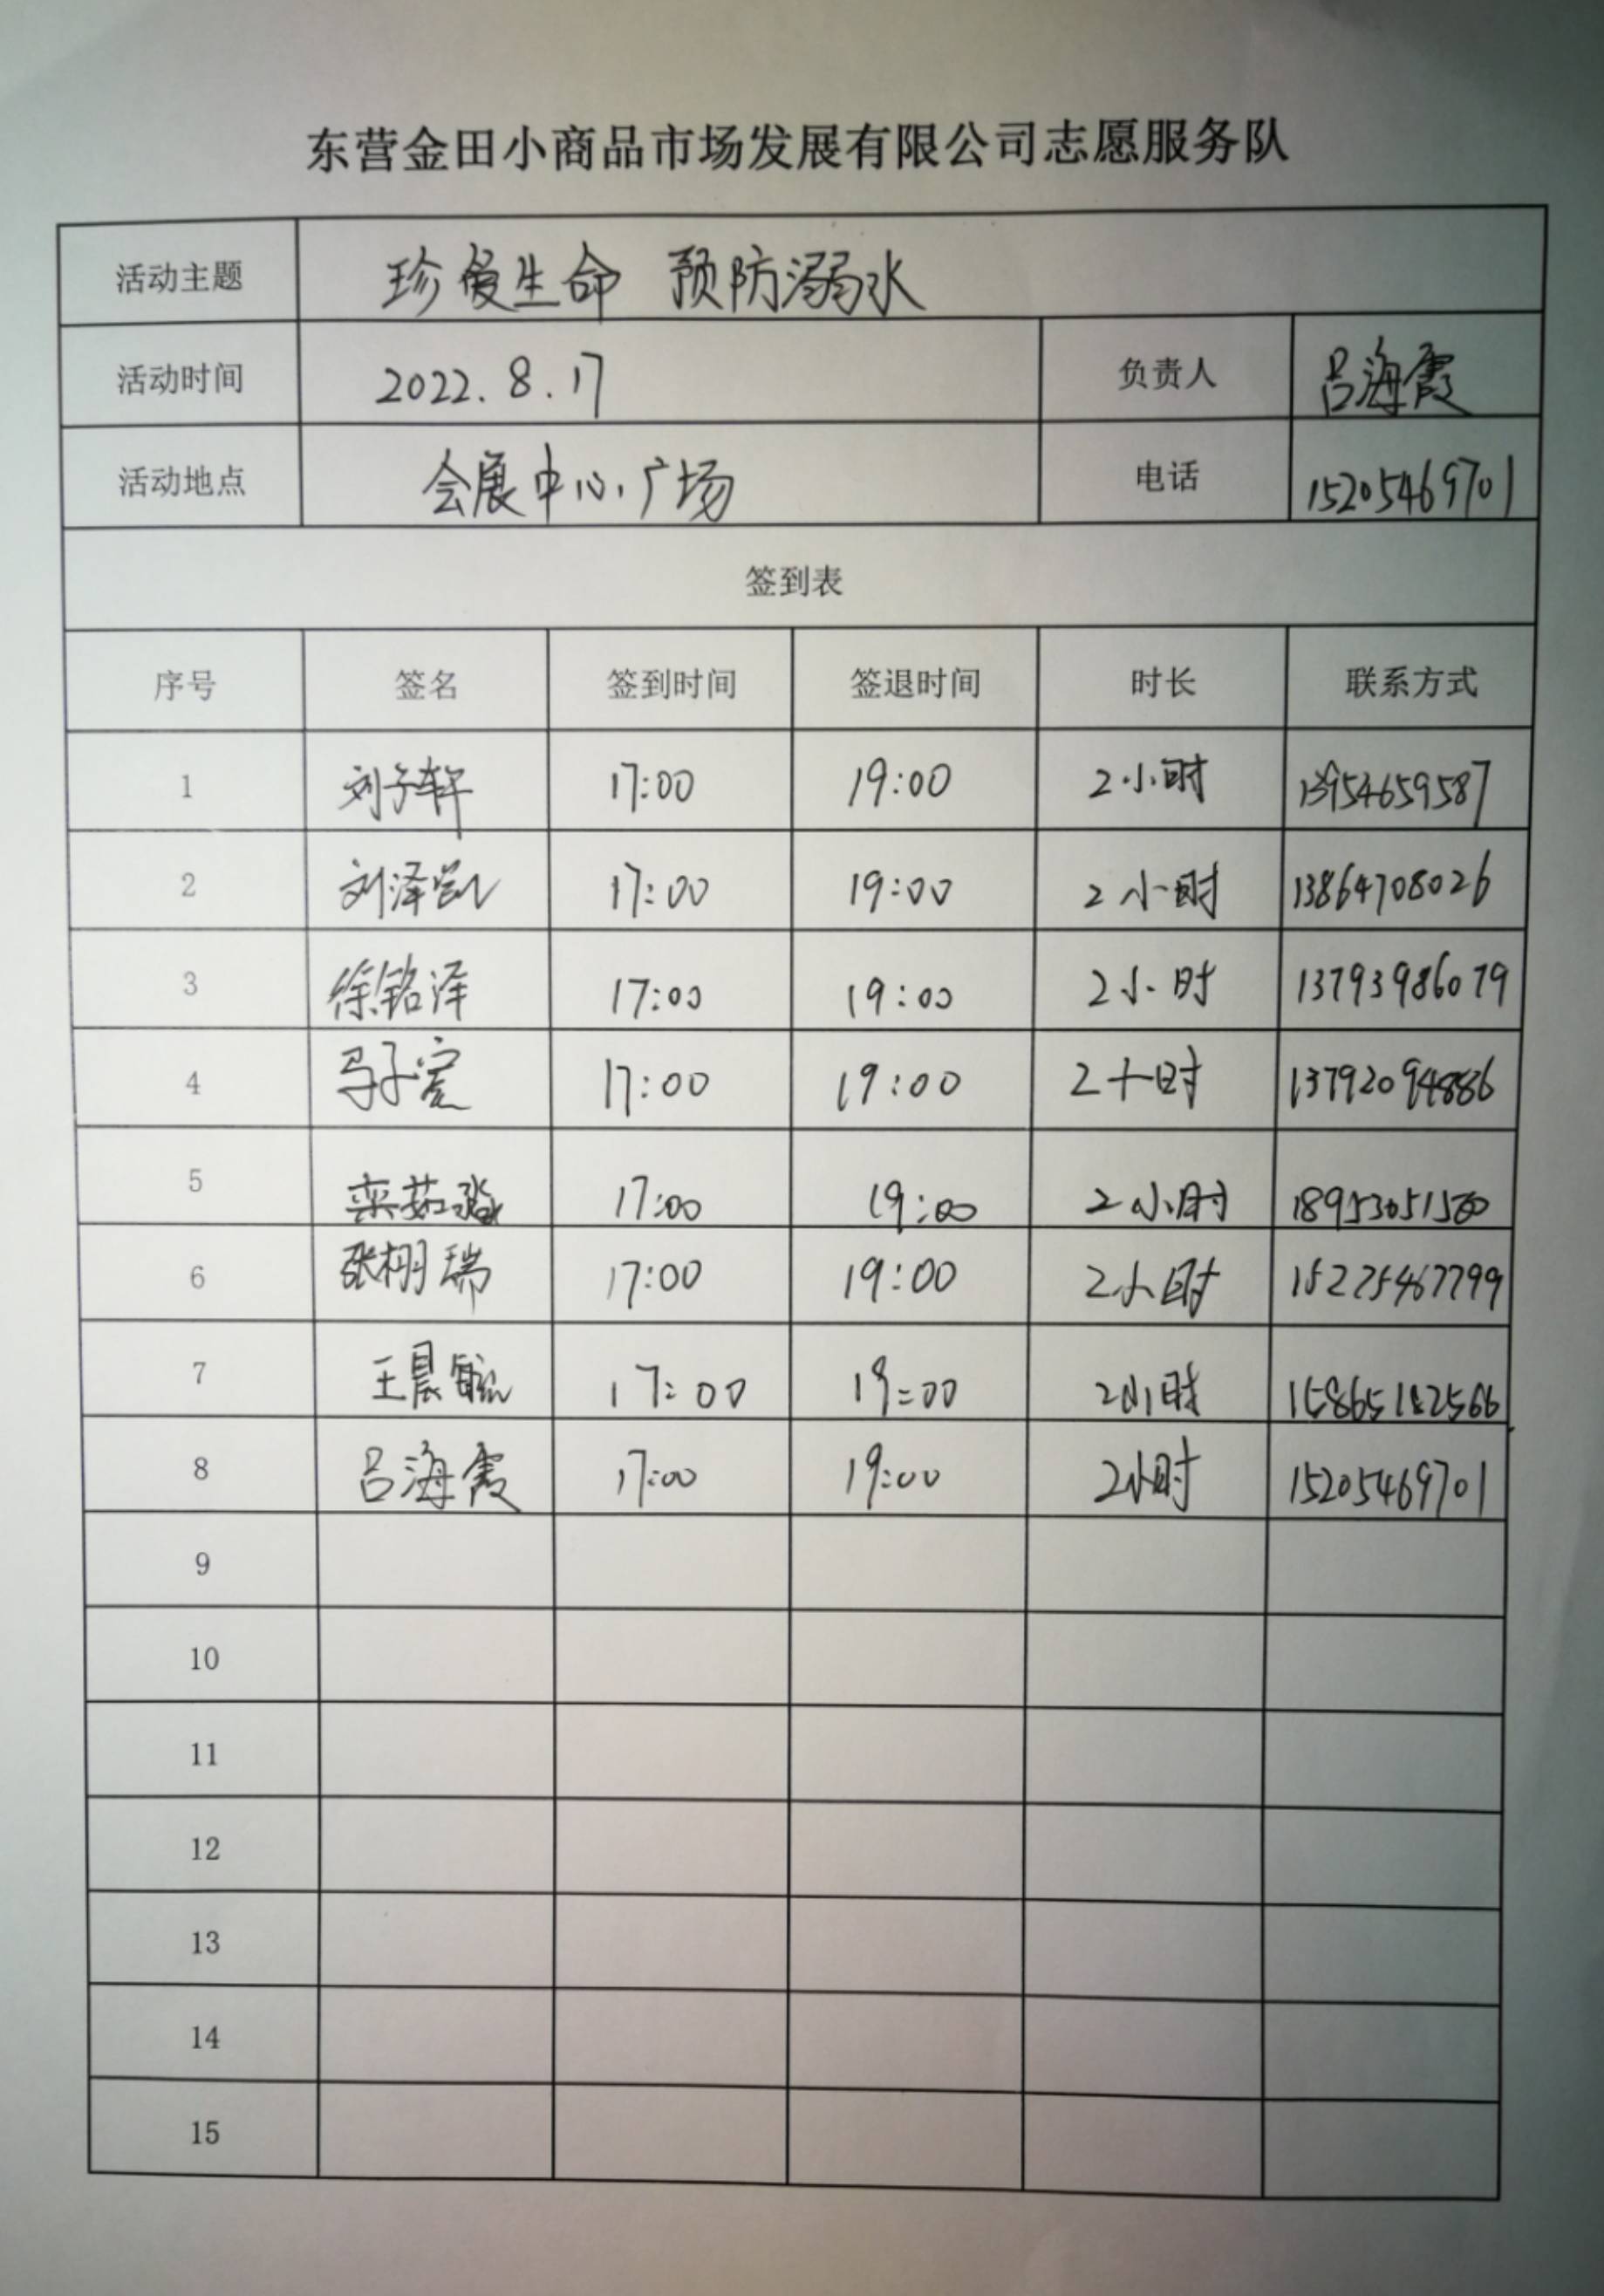 东营金田小商品市场发展有限公司志愿服务队
活动主题 珍爱生命 预防溺水
活动时间 2022.8.17 负责人 吕海霞
活动地点 会展中心广场 电话 15205469701
签到表
序号 签名 签到时间 签退时间 时长 联系方式
1 刘子轩 17:00 19:00 2小时 13954659587
2 刘泽凯 17:00 19:00 2小时 13864708026
3 徐铭泽 17:00 19:00 2小时 13793986079
4 马子宸 17:00 19:00 2小时 13792094886
5 栾茹淼 17:00 19:00 2小时
6 张栩瑞 17:00 19:00 2小时 15275467799
7 17:00 19:00 2小时
8 吕海霞 17:00 19:00 2小时 15205469701
9
10
11
12
13
14
15